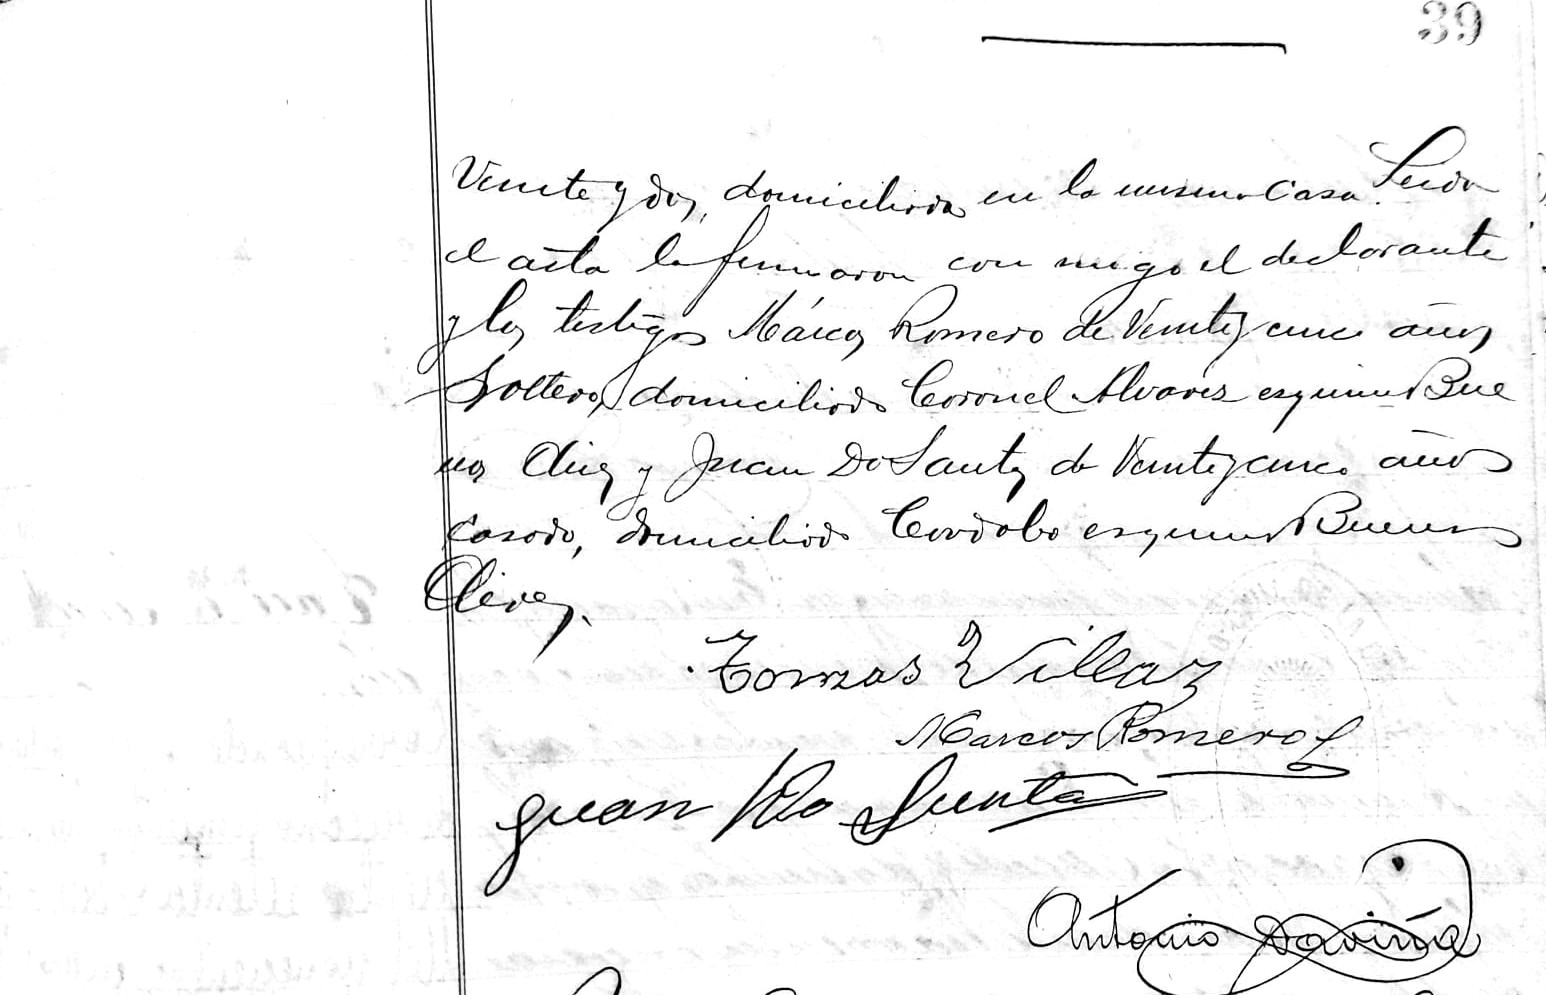 39
Veinte y dos, domiciliada en la misma casa. Leida
el acta la firmaron con migo el declarante
y los testigos Márcos Romero de Veintey cinco años
Soltero, domiciliado Coronel Alvarez esquina Bue
nos Aires y Juan Do Santos de Veinteycinco años
casado, domiciliado Cordoba esquina Buenos
Aires.
Tomas Villaz
Marcos Romero
Juan Do Santo
Antonio